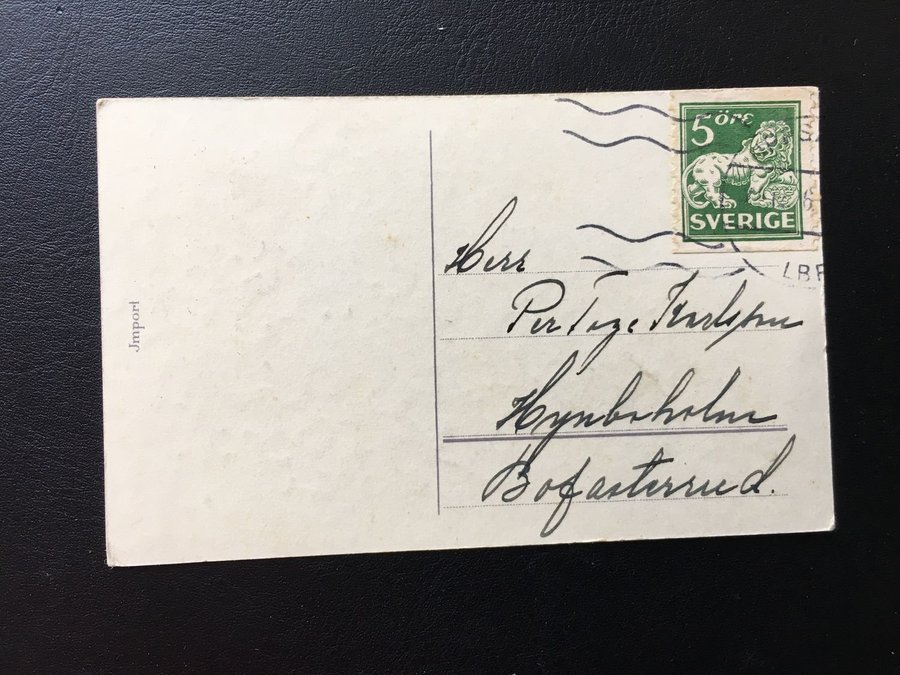 5 öre
SVERIGE
LBE
Herr
Per Tage Karlsson
Hynboholm
Bofasterud.
Jmport